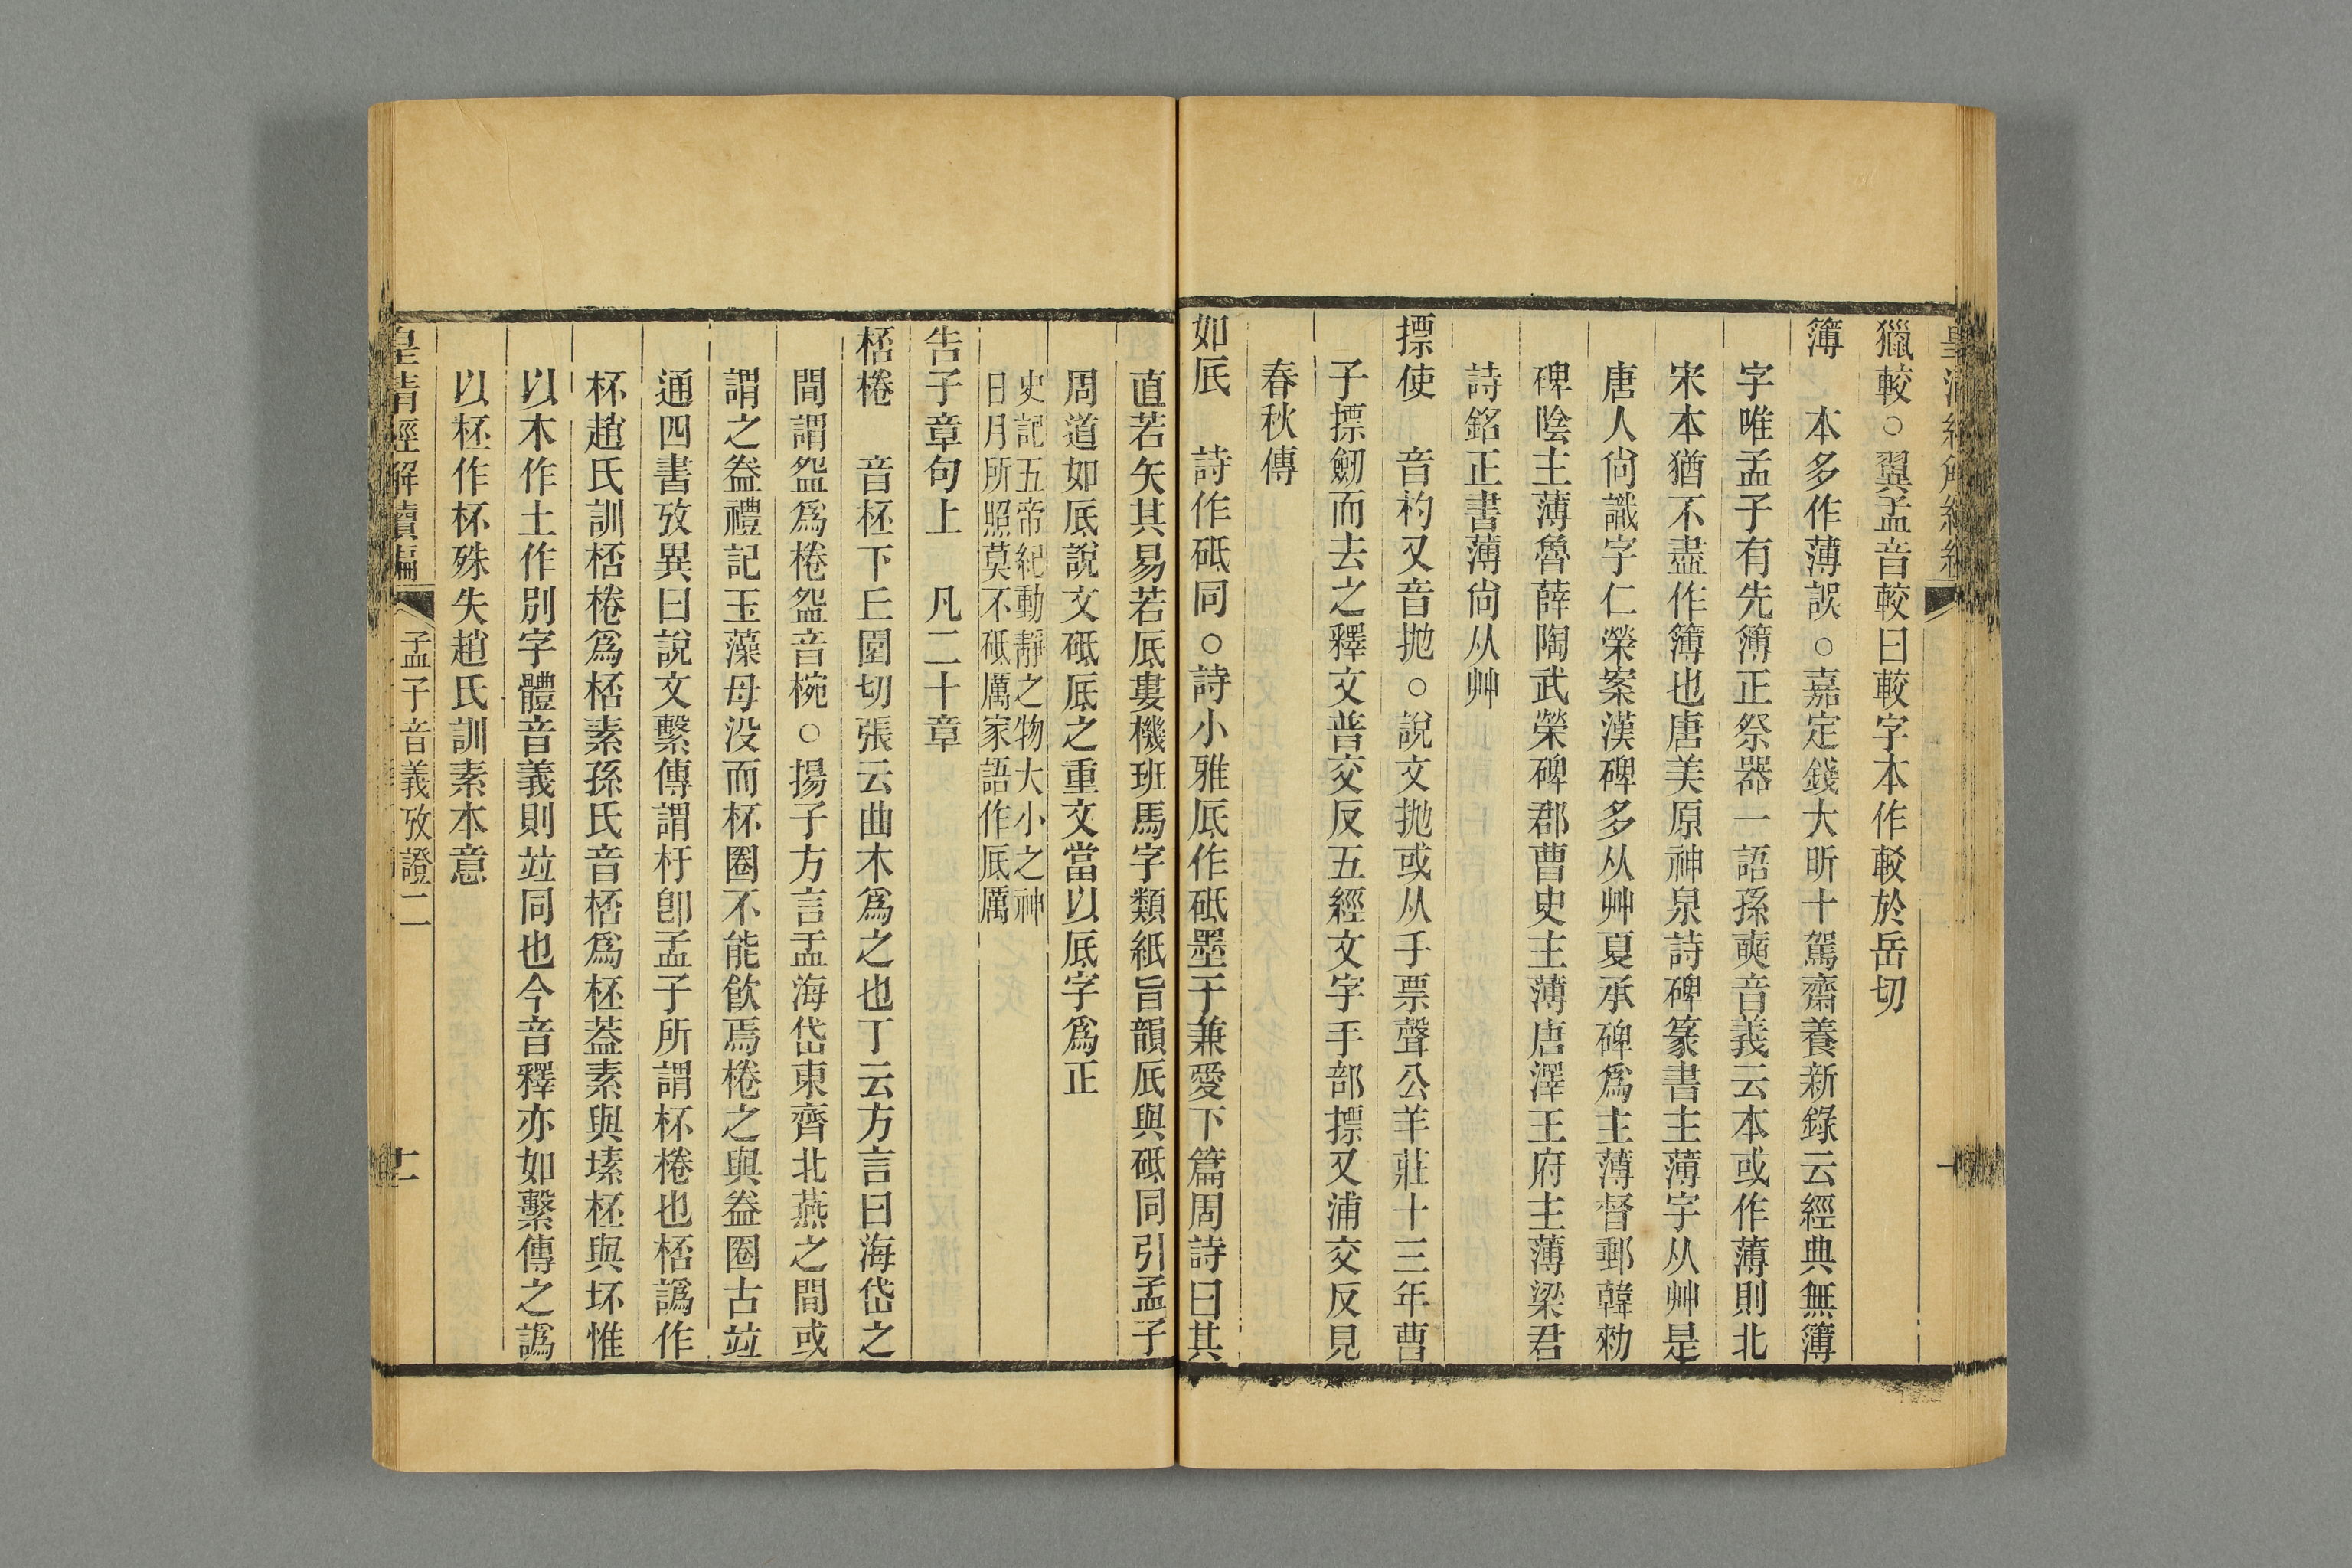 獵較○翼孟音較曰較字本作較於岳切
簿　本多作薄誤○嘉定錢大昕十駕齋養新錄云經典無簿
字唯孟子有先簿正祭器一語孫奭音義云本或作薄則北
宋本猶不盡作簿也唐美原神泉詩碑篆書主薄字从艸是
唐人尙識字仁榮案漢碑多从艸夏承碑爲主薄督郵韓勑
碑陰主薄魯薛陶武榮碑郡曹史主薄唐澤王府主薄梁君
詩銘正書薄尙从艸
摽使　音杓又音拋○說文拋或从手票聲公羊莊十三年曹
子摽劒而去之釋文普交反五經文字手部摽又浦交反見
春秋傳
如厎　詩作砥同○詩小雅厎作砥墨子兼愛下篇周詩曰其
直若矢其易若厎婁機班馬字類紙旨韻厎與砥同引孟子
周道如厎說文砥厎之重文當以厎字爲正
史記五帝紀動靜之物大小之神
日月所照莫不砥厲家語作厎厲
告子章句上　凡二十章
桮棬　音柸下丘圓切張云曲木爲之也丁云方言曰海岱之
間謂㿿爲棬㿿音椀○揚子方言盂海岱東齊北燕之間或
謂之盎禮記玉藻母没而杯圈不能飮焉棬之與盎圈古竝
通四書攷異曰說文繫傳謂杅卽孟子所謂杯棬也桮譌作
杯趙氏訓桮棬爲桮素孫氏音桮爲柸葢素與塐柸與坏惟
以木作土作別字體音義則竝同也今音釋亦如繫傳之譌
以柸作杯殊失趙氏訓素本意
皇清經解續編
孟子音義攷證二
十二